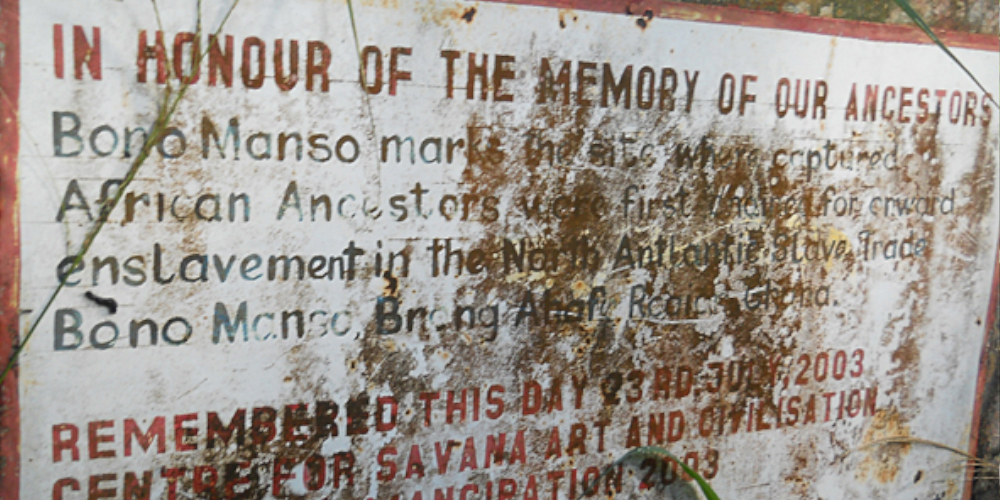 IN HONOUR OF THE MEMORY OF OUR ANCESTORS
Bono Manso marks the site where captured
African Ancestors were first for onward
enslavement in the North Antlantic Slave Trade
Bono Manso, Brong Ahafo Region Ghana.
REMEMBERED THIS DAY 23RD JULY, 2003
CENTRE FOR SAVANA ART AND CIVILISATION
EMANCIPATION 2003